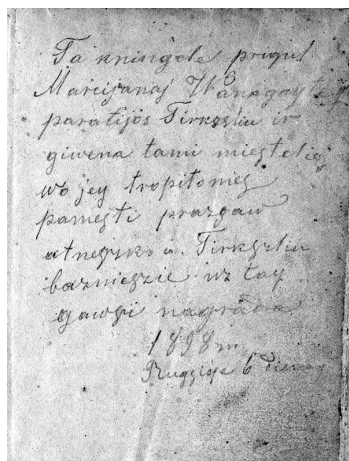 Ta kningele prigul
Marcijonaj Wanagayte
paratijos Tirkszliu ir
giwena tami miestelie
wo jey tropitomes
pamesti praszaw
atneszk a. Tirkszliu
bazniczie uz tay
gawsi nagrada
1898 m
Rugsieje 6 dieno